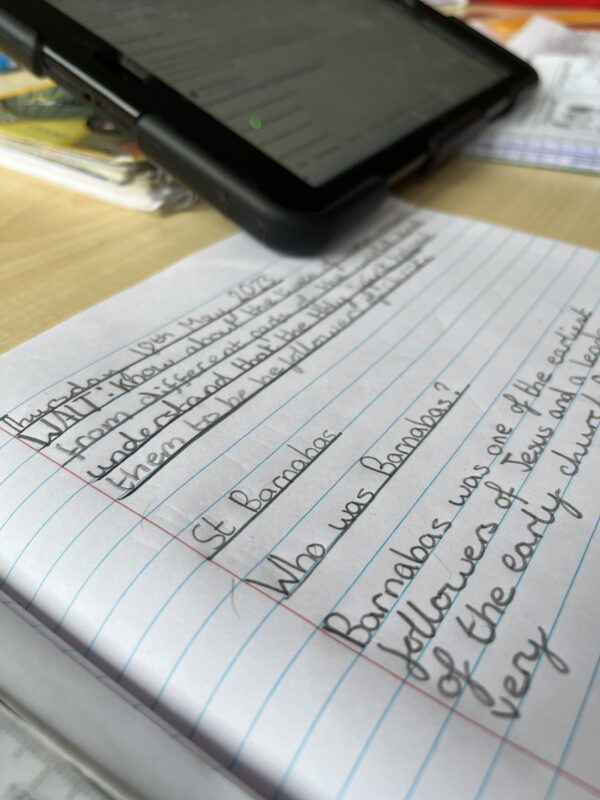 Thursday 19th May 2022
WALT: Know about the
from different parts of the
understand that the Holy Spirit helped
them to be be followers of Christ
St Barnabas
Who was Barnabas?
Barnabas was one of the earliest
followers of Jesus and a leade
of the early church
very